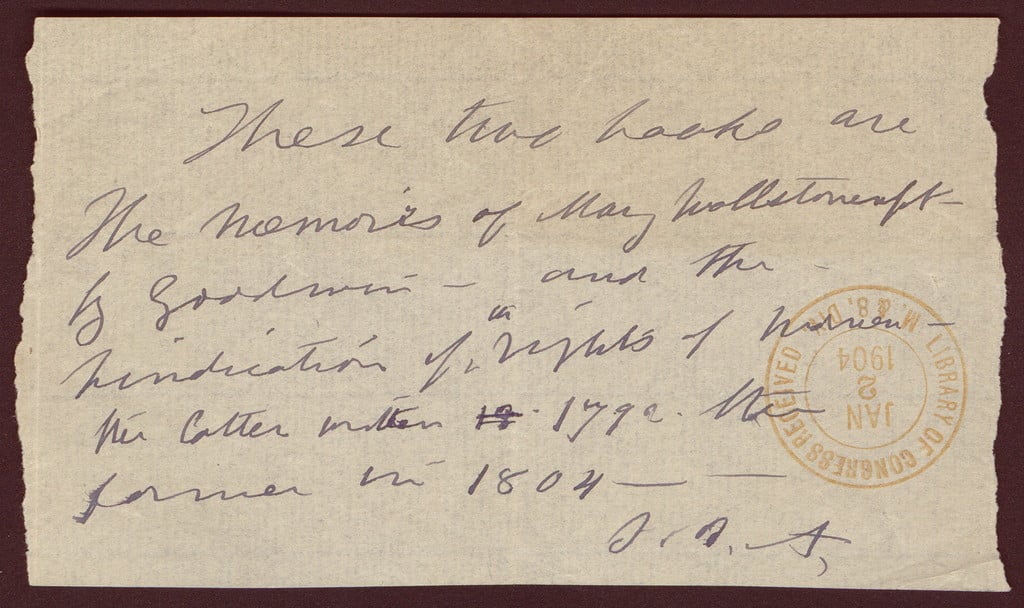 These two books are
The Memoirs of Mary Wollstoncraft –
by Goodwin – and the –
Vindication of the rights of Women –
the latter written 18 1792. the
former in 1804 — —
S. B. A,
LIBRARY OF CONGRESS RECEIVED
M. & S. DIV.
JAN
2
1904